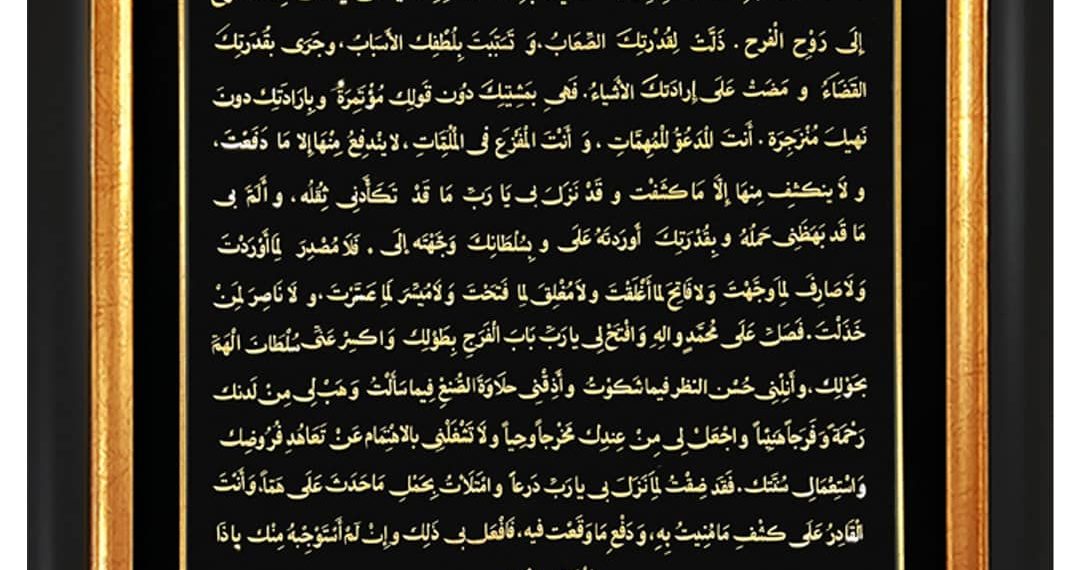 إِلَى رَوْحِ الْفَرَجِ. ذَلَّتْ لِقُدْرَتِكَ الصِّعَابُ، وَ تَسَبَّبَتْ بِلُطْفِكَ الأَسْبَابُ، وَجَرَى بِقُدْرَتِكَ
القَضَاءُ و مَضَتْ عَلَى إِرَادَتِكَ الأَشْيَاءُ. فَهِي بِمَشِيَّتِكَ دُونَ قَولِكَ مُؤْتَمِرَةٌ وبِإِرَادَتِكَ دونَ
نَهيِكَ مُنْزَجِرَة. أَنتَ المَدْعُوُّ لِلْمُهِمَّاتِ، وَ أَنْتَ المَفْزَع فى المُلِمَّاتِ، لا يَنْدَفِعُ مِنْهَا إلا مَا دَفَعْتَ،
و لاَ ينكشِف مِنهَا إِلَّا مَا كَشَفْت و قَدْ نَزَلَ بى يَا رَبِّ مَا قَدْ تَكَأَّدَنِي ثِقْلُه، و أَلَمَّ بى
مَا قَد بَهَظَنى حَمْلُهُ و بِقُدْرَتِكَ أَورَدتَهُ عَلَى و بِسُلطَانِكَ وَجَّهْتَه إلَى. فَلاَ مُصْدِرَ لِمَا أَوْرَدْتَ
وَلاَ صَارِفَ لِمَا وَجَّهْتَ وَلا فَاتِحَ لِمَا أَغْلَقْتَ ولاَ مُغْلِقَ لِما فَتَحْتَ وَلاَ مُيَسِّرَ لِمَا عَسَّرْتَ، و لاَ نَاصِرَ لِمَنْ
خَذَلْتَ. فَصَلِّ عَلَى مُحَمَّدٍ والِهِ وَافْتَحْ لِي يا رَبِّ بَابَ الْفَرَجِ بِطَوْلِكَ وَاكسِرْ عَنِّى سُلْطَانَ الْهَمِّ
بِحَوْلِكَ. وأَنِلْنِى حُسْنَ النظر فيما شَكَوْتُ وأَذِقْنِى حلاَوَةَ الصُّنعِ فِيما سَأَلْتُ وَهَبْ لِي مِنْ لَدنكَ
رَحْمَةً وَ فَرَجاً هَنِيئاً واجْعَلْ لِى مِنْ عِندِكَ مَخْرَجاً وحِياً ولاَ تَشْغَلْنِى بالاهْتِمَام عَنْ تَعَاهُدِ فُرُوضِكَ
وَاسْتِعْمَالِ سُنَّتكَ. فَقَد ضِقْتُ لِمَا نَزَلَ بى يا رَبِّ ذَرعاً وامْتَلأْتُ بِحَمْلِ مَا حَدَثَ عَلَى هَمّاً، وَأَنْتَ
الْقَادِرُ عَلَى كَشْفِ مَا مُنِيتُ بِهِ، وَدَفْعِ مَا وَقَعْت فِيه، فَافْعَل بى ذَلِكَ وإِنْ لَمْ أَسْتَوْجِبْهُ مِنْكَ يا ذَا